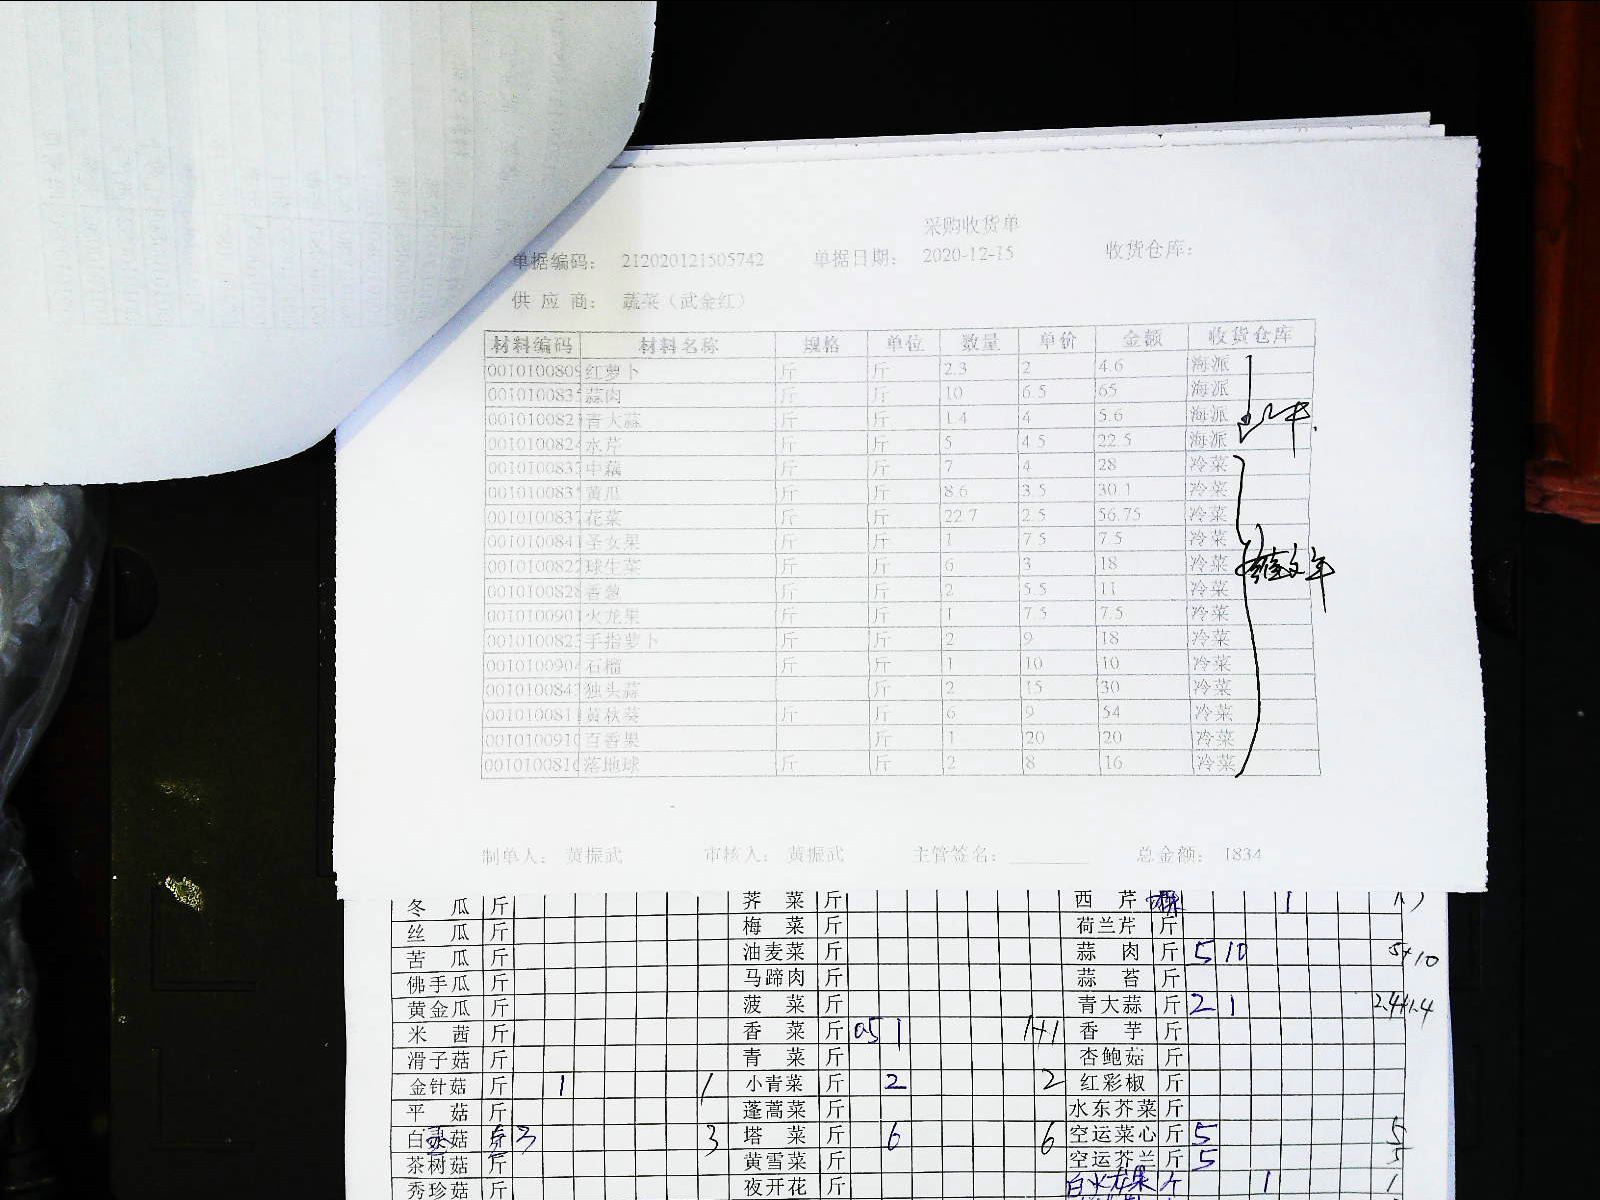 采购收货单
单据编码： 212020121505742 单据日期： 2020-12-15 收货仓库：
供 应 商： 蔬菜（武金红）
材料编码 材料名称 规格 单位 数量 单价 金额 收货仓库
0010100809 红萝卜 斤 斤 2.3 2 4.6 海派
001010083 蒜肉 斤 斤 10 6.5 65 海派
001010082 青大蒜 斤 斤 1.4 4 5.6 海派
001010082 水芹 斤 斤 5 4.5 22.5 海派
001010083 中藕 斤 斤 7 4 28 冷菜
001010083 黄瓜 斤 斤 8.6 3.5 30.1 冷菜
001010083 花菜 斤 斤 22.7 2.5 56.75 冷菜
001010084 圣女果 斤 斤 1 7.5 7.5 冷菜
001010082 球生菜 斤 斤 6 3 18 冷菜
001010082 香葱 斤 斤 2 5.5 11 冷菜
001010090 火龙果 斤 斤 1 7.5 7.5 冷菜
001010082 手指萝卜 斤 斤 2 9 18 冷菜
001010090 石榴 斤 斤 1 10 10 冷菜
001010084 独头蒜 斤 2 15 30 冷菜
001010081 黄秋葵 斤 斤 6 9 54 冷菜
001010091 百香果 斤 1 20 20 冷菜
001010081 落地球 斤 斤 2 8 16 冷菜
制单人： 黄振武 审核人： 黄振武 主管签名： 总金额： 1834
冬 瓜 斤 荠 菜 斤 西 芹 1
丝 瓜 斤 梅 菜 斤 荷兰芹 斤
苦 瓜 斤 油麦菜 斤 蒜 肉 斤 5 10 5+10
佛手瓜 斤 马蹄肉 斤 蒜 苔 斤
黄金瓜 斤 菠 菜 斤 青大蒜 斤 2 1 2.4+1.4
米 茜 斤 香 菜 斤 0.5 1 1+1 香 芋 斤
滑子菇 斤 青 菜 斤 杏鲍菇 斤
金针菇 斤 1 1 小青菜 斤 2 2 红彩椒 斤
平 菇 斤 蓬蒿菜 斤 水东芥菜 斤
白 菇 3 3 塔 菜 斤 6 6 空运菜心 斤 5 5
茶树菇 斤 黄雪菜 斤 空运芥兰 斤 5 5
秀珍菇 斤 夜开花 斤 白火龙果 斤 1 1